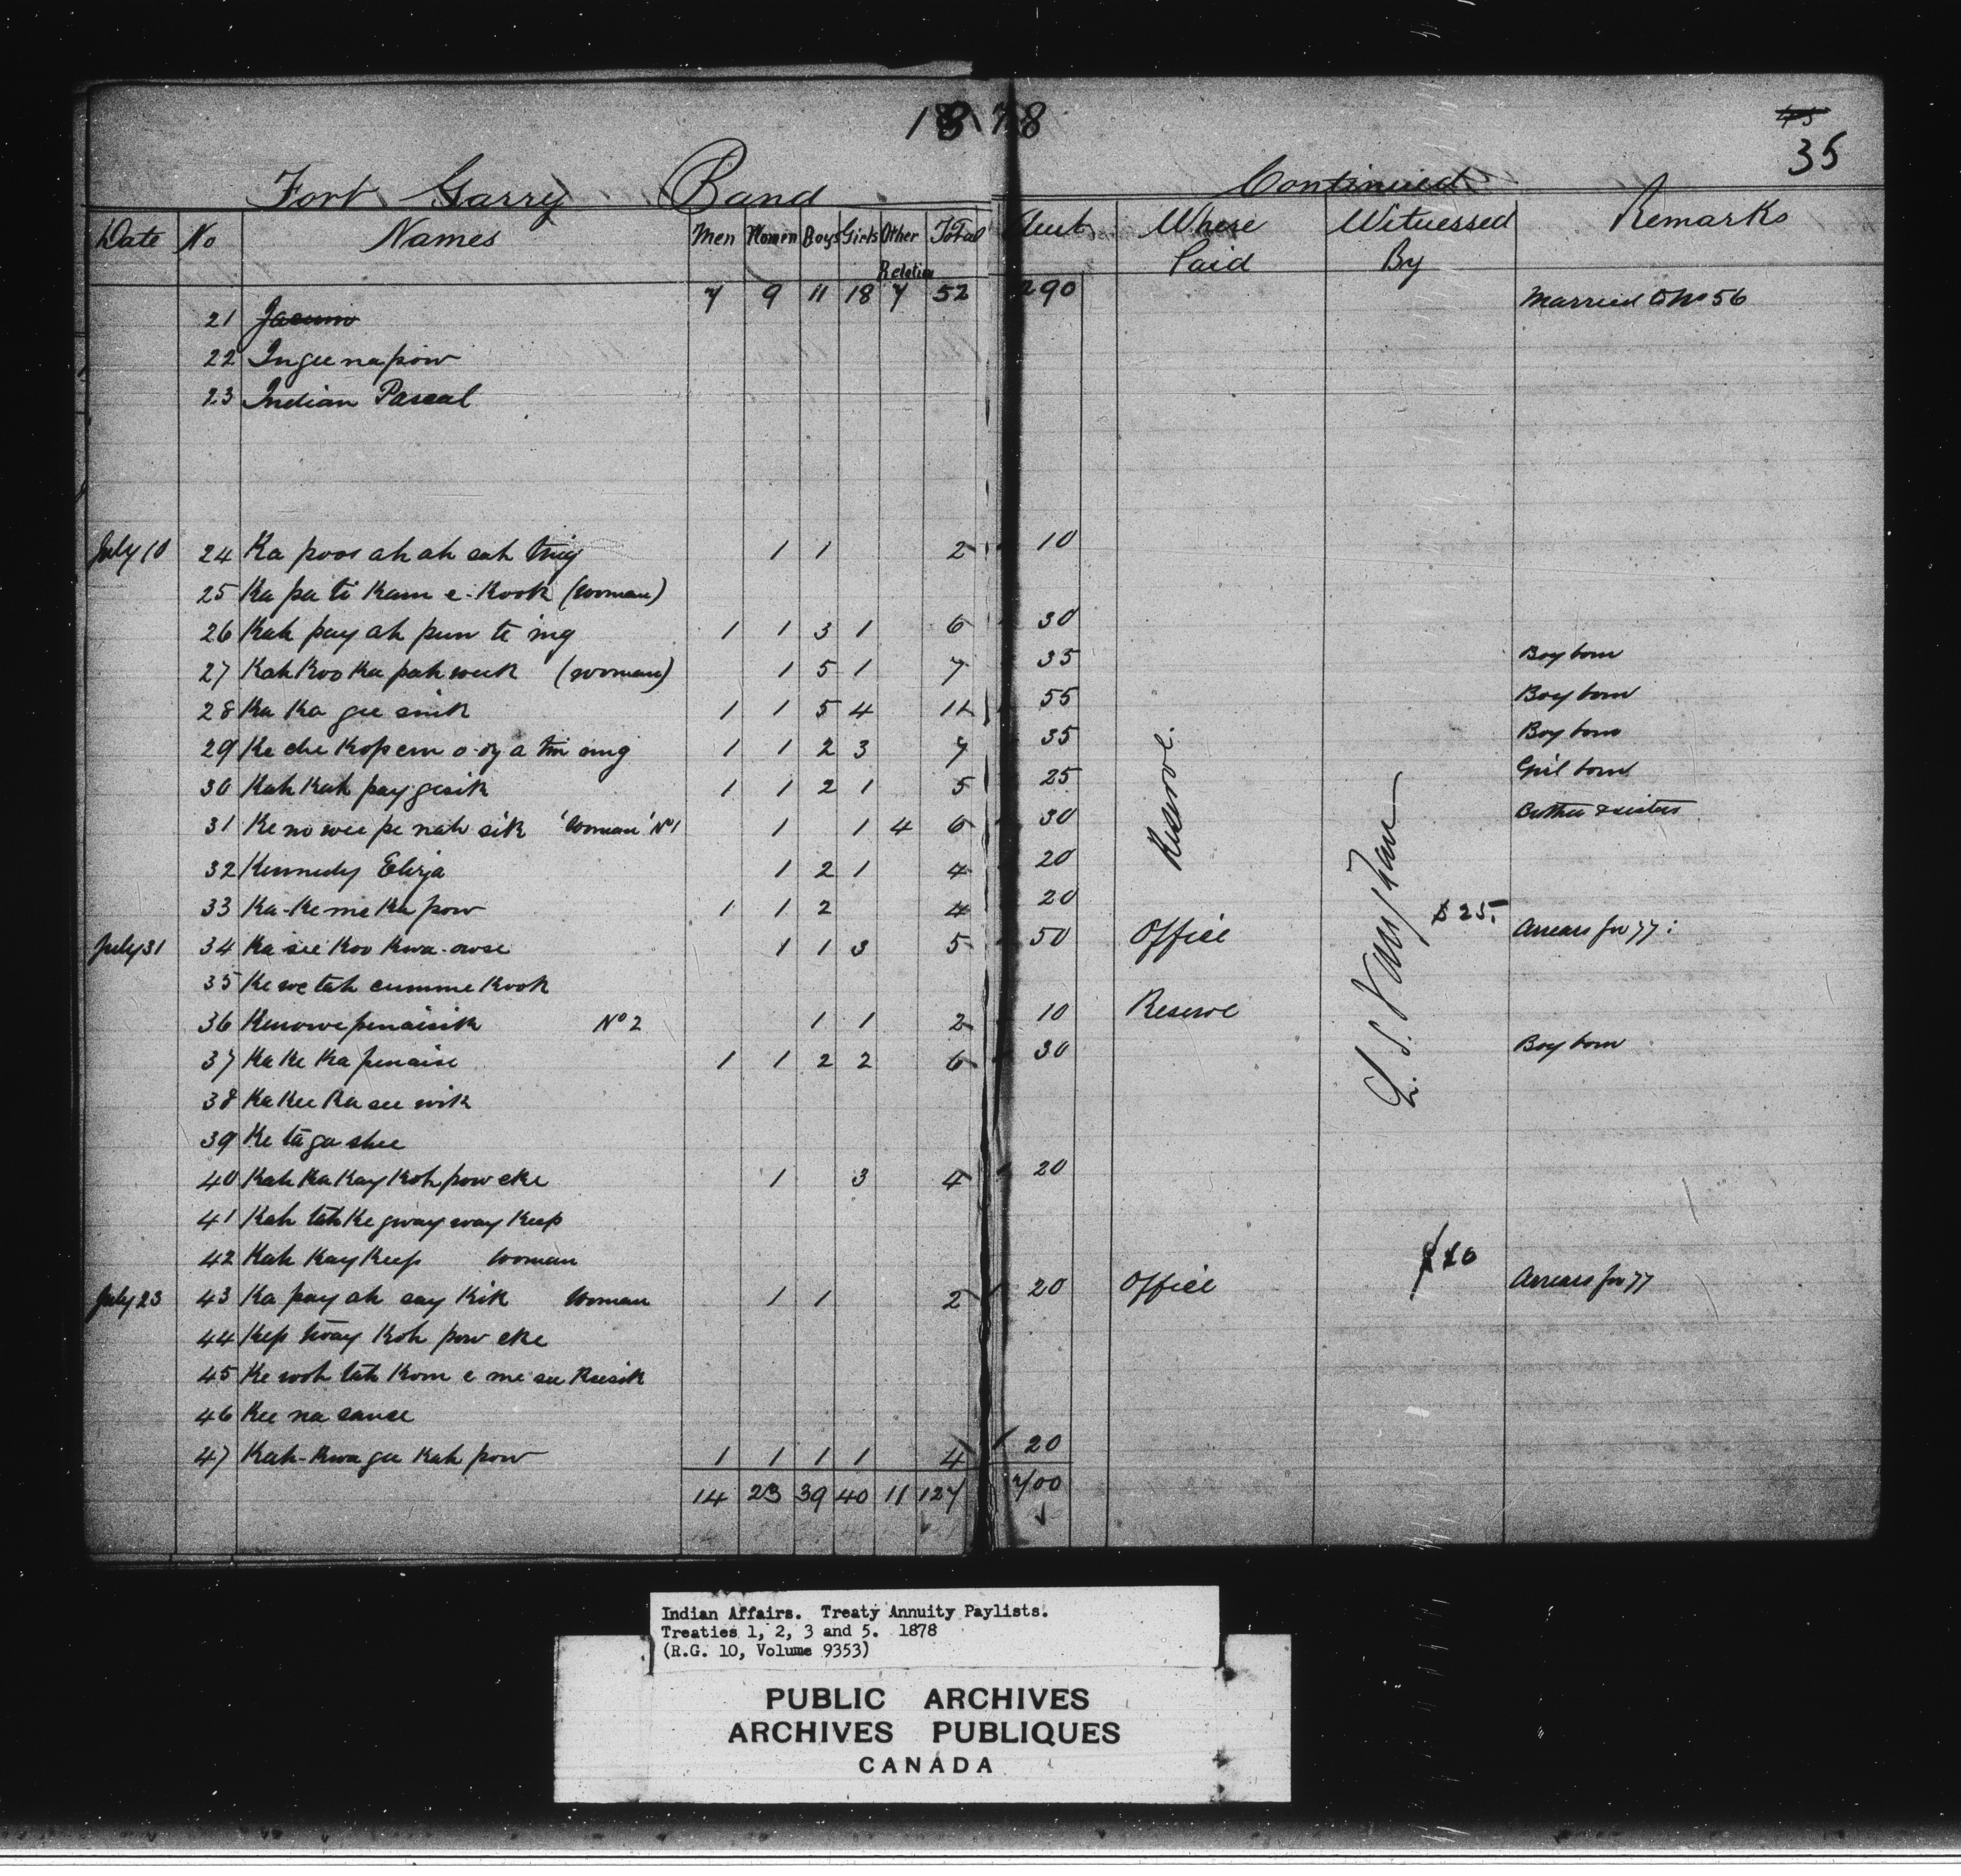 1878
45
35
Fort Garry Band Continued
Date No Names Men Women Boys Girls Other Relation Total Amt Where Paid Witnessed By Remarks
7 9 11 18 7 52 290 Married to No 56
21 Jacuno
22 Ingee na pow
23 Indian Pascal
July 10 24 Ka poos ah ah cah ting 1 1 2 10
25 Ka pa ti Kam e-Kook (woman)
26 Kah pay ah pun te ing 1 1 3 1 6 30
27 Kah Koo Ka pah week (woman) 1 5 1 7 35 Boy born
28 Ka Ka gee sink 1 1 5 4 11 55 Boy born
29 Ke che Kop em o-oy a tin ung 1 1 2 3 7 35 Boy born
30 Kah Kah pay gisik 1 1 2 1 5 25 Girl born
31 Ke no wee pe nah sik 'Woman' No 1 1 1 4 6 30 Brother & sisters
32 Kennedy Eliza 1 2 1 4 20
33 Ka-Ke me Ka pow 1 1 2 4 20
Reserve
July 31 34 Ka see Koo Kwa-owse 1 1 3 5 50 Office $25. Arrears for 77:
35 Ke we tah cumme Kook
36 Kenowe penaisik No 2 1 1 2 10 Reserve
37 Ka Ke Ka penaise 1 1 2 2 6 30 Boy born
L. S. Vaughan
38 Ka Kee Ka see wik
39 Ke ta ga shee
40 Kah Ka Kay Koh pow eke 1 3 4 20
41 Kah tah Ke gway way Keep
42 Kah Kay Keep Woman
July 23 43 Ka pay ah cay Kik Woman 1 1 2 20 Office $10 Arrears for 77
44 Kep tway Koh pow eke
45 Ke woh tah Kom e me see Keesik
46 Kee na sanse
47 Kah-Kwa ga Kah pow 1 1 1 1 4 20
14 23 39 40 11 127 700
Indian Affairs. Treaty Annuity Paylists.
Treaties 1, 2, 3 and 5. 1878
(R.G. 10, Volume 9353)
PUBLIC ARCHIVES
ARCHIVES PUBLIQUES
CANADA